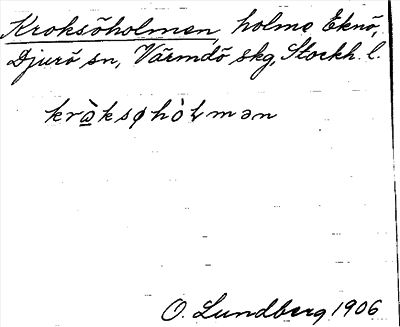 Kroksöholmen, holme Eknö,
Djurö sn, Värmdö skg, Stockh. l.
krà̱ksøhòḷmən
O. Lundberg 1906